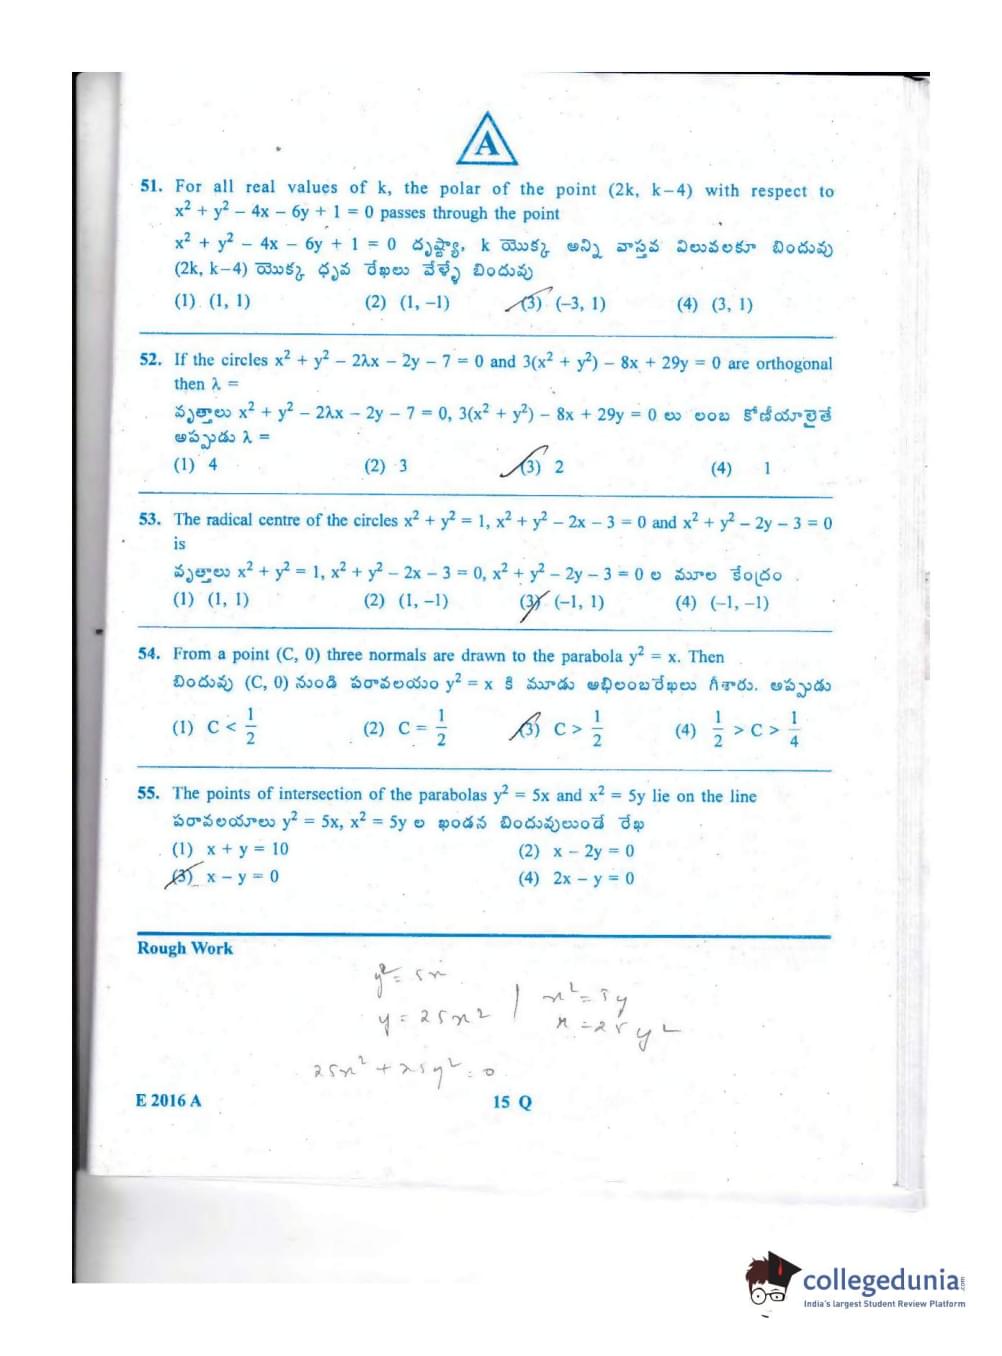 A
51. For all real values of k, the polar of the point (2k, k–4) with respect to
x² + y² – 4x – 6y + 1 = 0 passes through the point
x² + y² – 4x – 6y + 1 = 0 దృష్ట్యా, k యొక్క అన్ని వాస్తవ విలువలకూ బిందువు
(2k, k–4) యొక్క ధృవ రేఖలు వేళ్ళే బిందువు
(1) (1, 1) (2) (1, –1) (3) (–3, 1) (4) (3, 1)
52. If the circles x² + y² – 2λx – 2y – 7 = 0 and 3(x² + y²) – 8x + 29y = 0 are orthogonal
then λ =
వృత్తాలు x² + y² – 2λx – 2y – 7 = 0, 3(x² + y²) – 8x + 29y = 0 లు లంబ కోణీయాలైతే
అప్పుడు λ =
(1) 4 (2) 3 (3) 2 (4) 1
53. The radical centre of the circles x² + y² = 1, x² + y² – 2x – 3 = 0 and x² + y² – 2y – 3 = 0
is
వృత్తాలు x² + y² = 1, x² + y² – 2x – 3 = 0, x² + y² – 2y – 3 = 0 ల మూల కేంద్రం
(1) (1, 1) (2) (1, –1) (3) (–1, 1) (4) (–1, –1)
54. From a point (C, 0) three normals are drawn to the parabola y² = x. Then
బిందువు (C, 0) నుండి పరావలయం y² = x కి మూడు అభిలంబరేఖలు గీశారు. అప్పుడు
(1) C < 1/2 (2) C = 1/2 (3) C > 1/2 (4) 1/2 > C > 1/4
55. The points of intersection of the parabolas y² = 5x and x² = 5y lie on the line
పరావలయాలు y² = 5x, x² = 5y ల ఖండన బిందువులుండే రేఖ
(1) x + y = 10 (2) x – 2y = 0
(3) x – y = 0 (4) 2x – y = 0
Rough Work
y² = 5x
y = 25x² | x² = 5y
x = 25y²
25x² + 25y² = 0
E 2016 A 15 Q
collegedunia.com
India's largest Student Review Platform